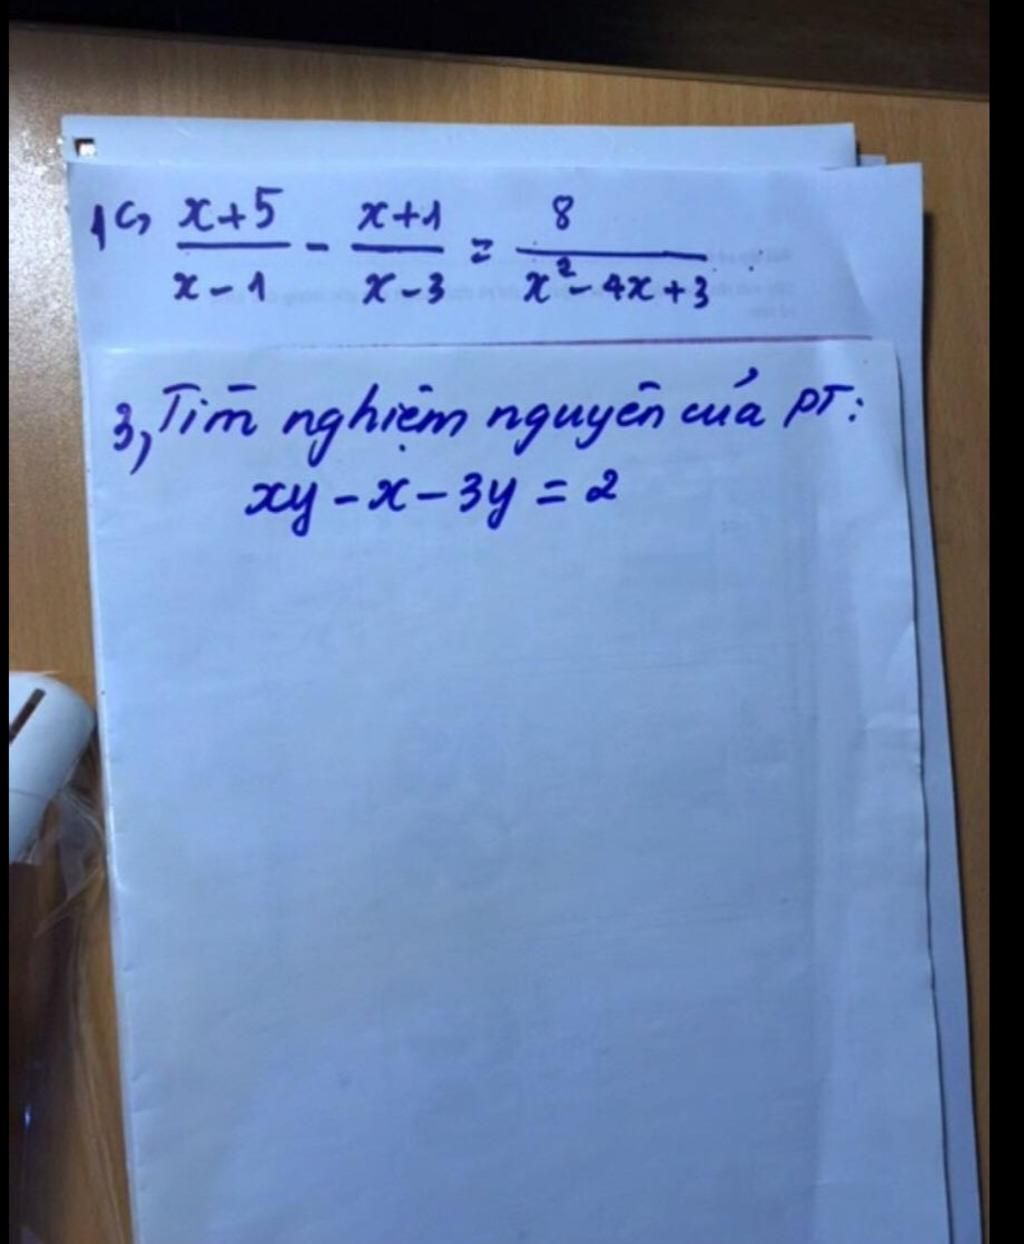 1c, x+5/x-1 - x+1/x-3 = 8/x²-4x+3
3, Tìm nghiệm nguyên của PT:
xy-x-3y=2